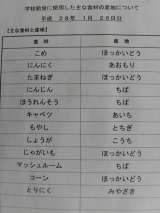 学校給食に使用した主な食材の産地について
平成 28年 1月 26日分
【主な食材と産地】
食材 産地
こめ ほっかいどう
にんにく あおもり
たまねぎ ほっかいどう
にんじん ちば
ほうれんそう ちば
キャベツ あいち
もやし とちぎ
しょうが こうち
じゃがいも ほっかいどう
マッシュルーム ちば
コーン ほっかいどう
とりにく みやざき